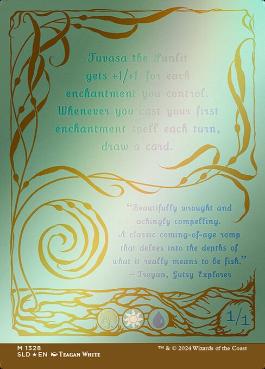 Tuvasa the Sunlit
gets +1/+1 for each
enchantment you control.
Whenever you cast your first
enchantment spell each turn,
draw a card.
"Beautifully wrought and
achingly compelling.
A classic coming-of-age romp
that delves into the depths of
what it really means to be fish."
— Troyan, Gutsy Explorer
1/1
M 1328
SLD ★ EN Teagan White
™ & © 2024 Wizards of the Coast